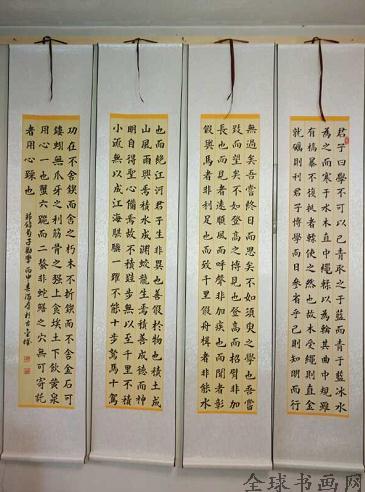 君子曰學不可以已青取之于藍而青于藍冰水
為之而寒于水木直中繩輮以為輪其曲中規雖
有槁暴不復挺者輮使之然也故木受繩則直金
就礪則利君子博學而日參省乎己則知明而行
無過矣吾嘗終日而思矣不如須臾之學也吾嘗
跂而望矣不如登高之博見也登高而招臂非加
長也而見者遠順風而呼聲非加疾也而聞者彰
假輿馬者非利足也而致千里假舟楫者非能水
也而絕江河君子生非異也善假於物也積土成
山風雨興焉積水成淵蛟龍生焉積善成德而神
明自得聖心備焉故不積跬步無以至千里不積
小流無以成江海騏驥一躍不能十步駑馬十駕
功在不舍鍥而舍之朽木不折鍥而不舍金石可
鏤蚓無爪牙之利筋骨之强上食埃土下飲黃泉
用心一也蟹六跪而二螯非蛇鱔之穴無可寄託
者用心躁也
荀子勸學
全球书画网